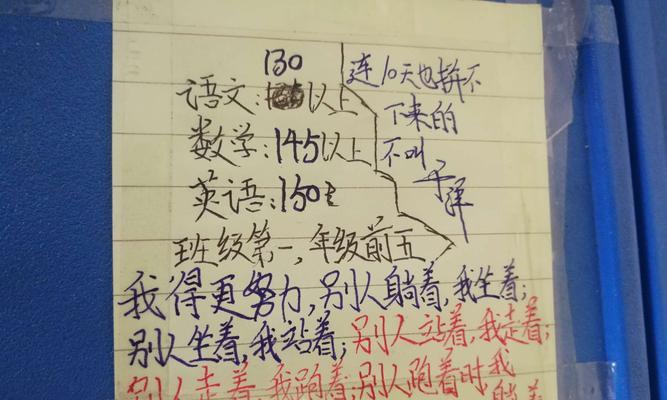 130
语文:以上
数学:145以上
英语:130
班级第一,年级前五
连10天也拚不
下来的
不叫
于洋
我得更努力,别人躺着,我坐着;
别人坐着,我站着;别人站着,我走着;
别人走着,我跑着;别人跑着时我
躺着